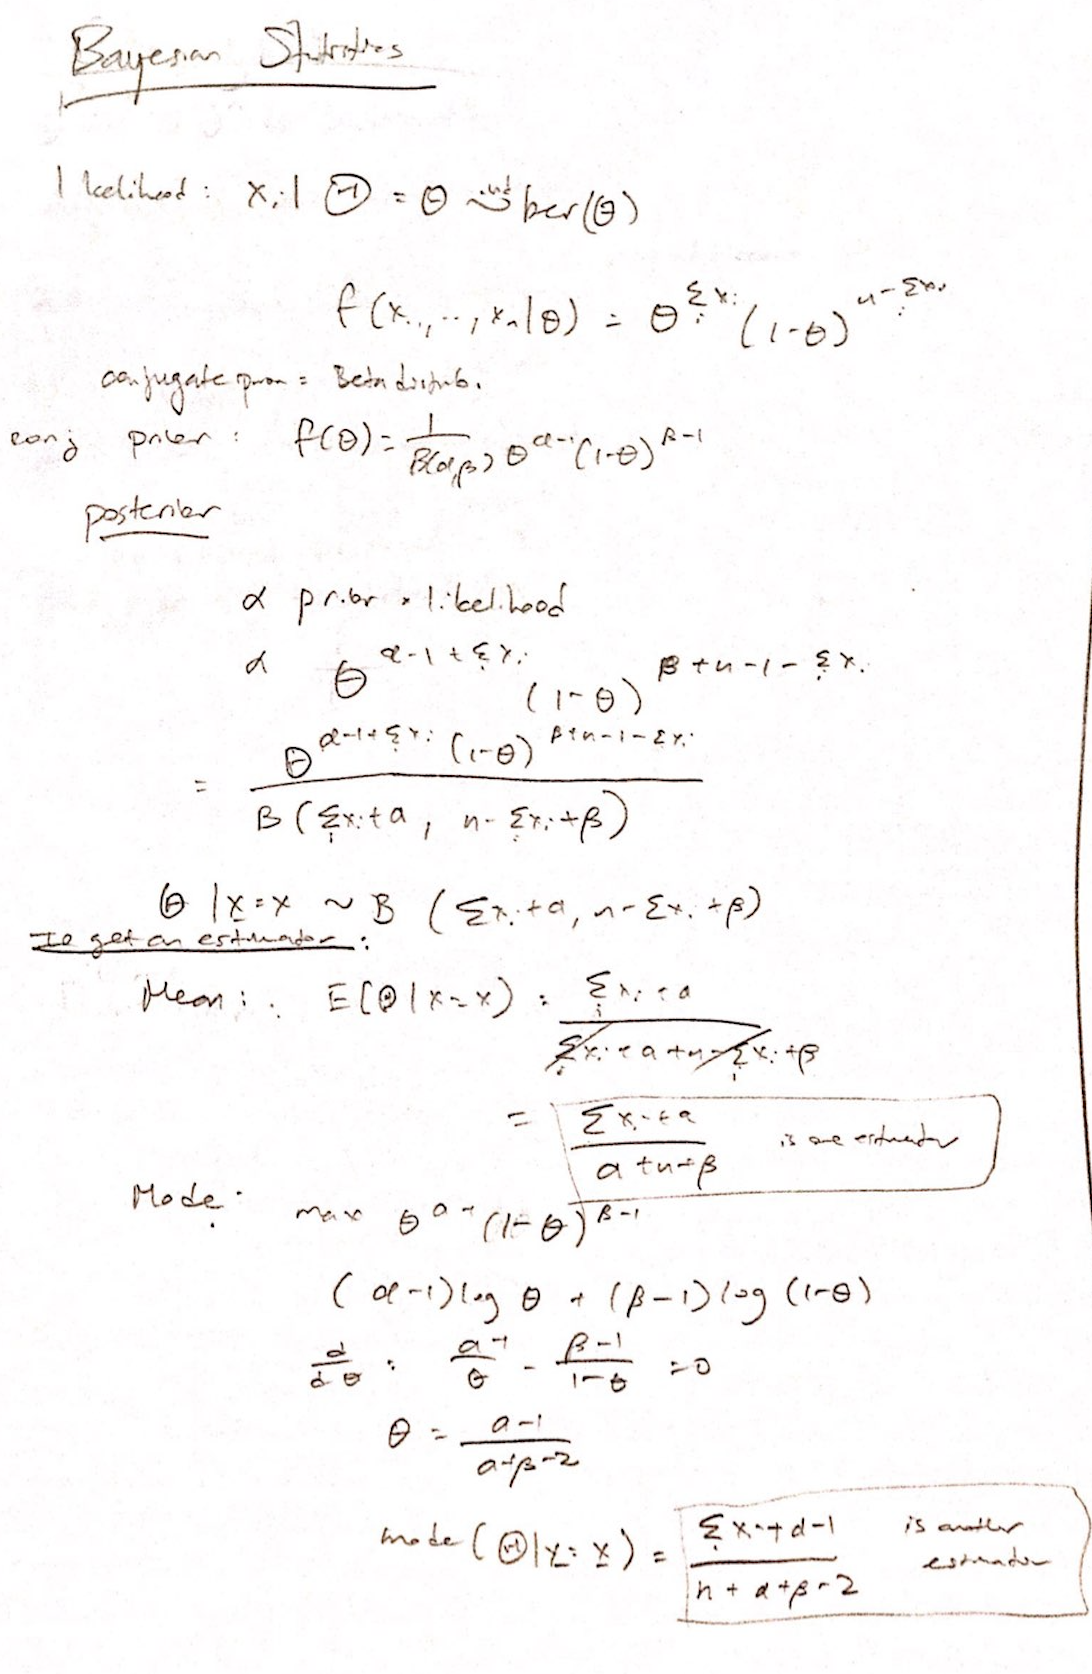 Bayesian Statistics
likelihood : Xᵢ | Θ = θ ind~ ber(θ)
f(x₁, .., xₙ | θ) = θ^(Σᵢ xᵢ) (1-θ)^(n - Σᵢ xᵢ)
conjugate prior = Beta distrib.
conj prior : f(θ) = 1/B(α,β) θ^(α-1) (1-θ)^(β-1)
posterior
α prior × likelihood
α θ^(α-1+Σᵢ xᵢ) (1-θ)^(β+n-1-Σᵢ xᵢ)
= θ^(α-1+Σᵢ xᵢ) (1-θ)^(β+n-1-Σxᵢ) / B(Σᵢ xᵢ+a, n-Σᵢ xᵢ+β)
Θ | X=x ~ B (Σxᵢ+a, n-Σxᵢ+β)
To get an estimator :
Mean : E(Θ | X=x) = (Σᵢ xᵢ + a) / (Σᵢ xᵢ + a + n - Σᵢ xᵢ + β)
= (Σ xᵢ + a) / (a + n + β) is one estimator
Mode : max θ^(a-1) (1-θ)^(β-1)
(α-1) log θ + (β-1) log (1-θ)
d/dθ : (a-1)/θ - (β-1)/(1-θ) = 0
θ = (a-1)/(a+β-2)
mode (Θ | X = x) = (Σᵢ xᵢ + α - 1) / (n + α + β - 2) is another estimator